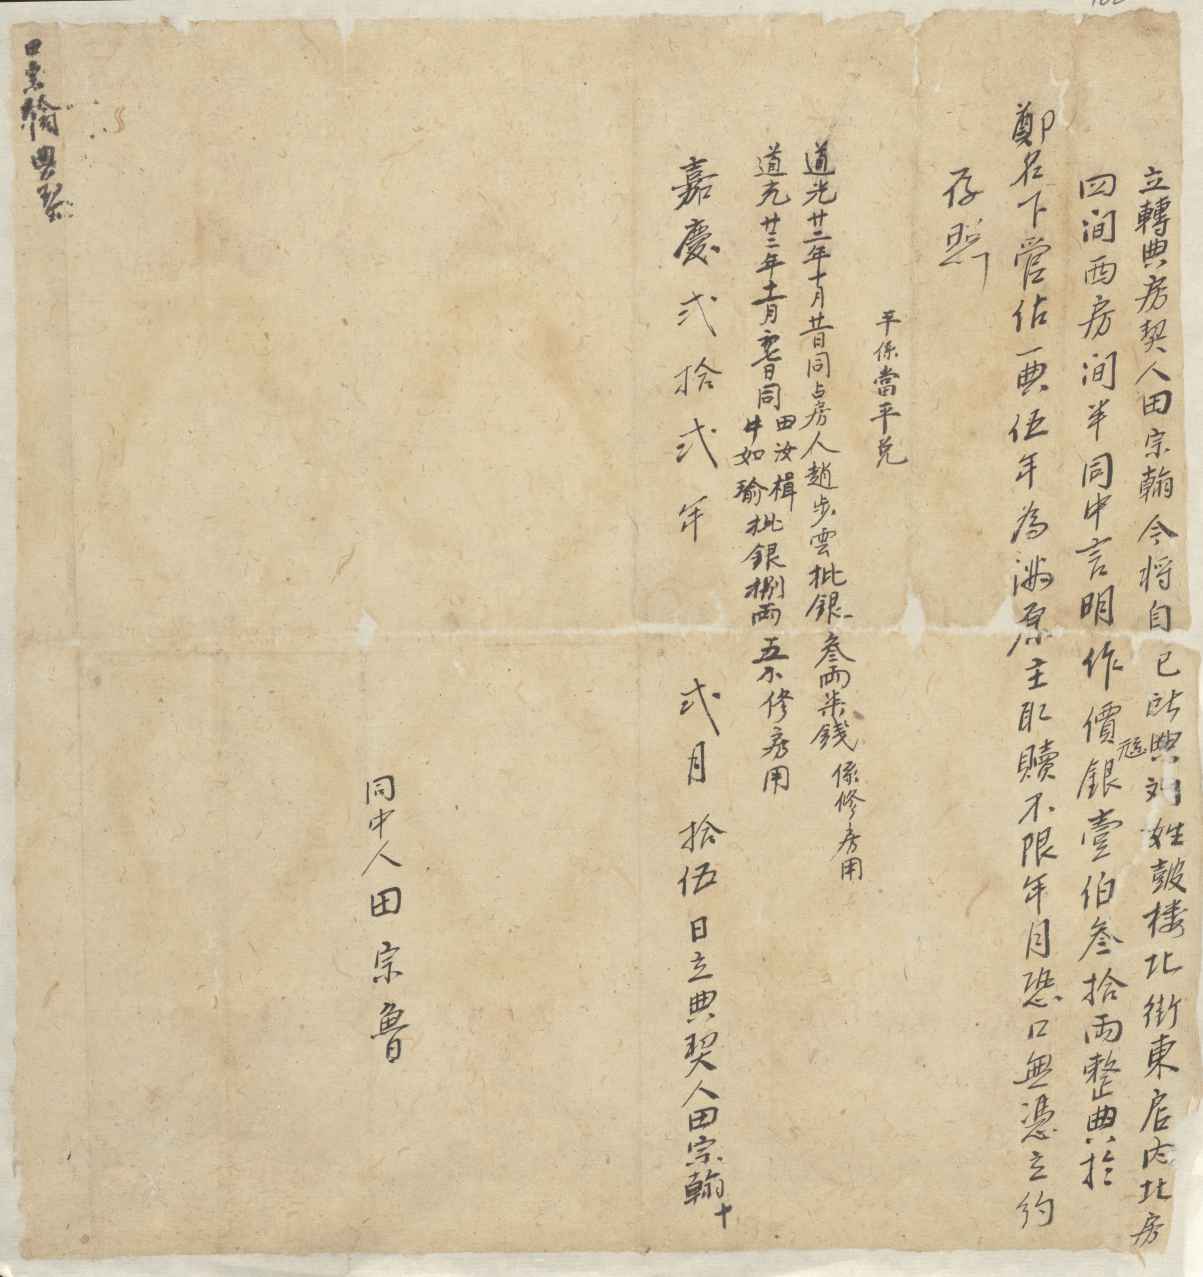 立轉典房契人田宗翰今將自己所典刘姓鼓楼北街東店内北房
四间西房间半同中言明作價銀壹伯叁拾两整典於
鄭名下管佔一典伍年為满原主取贖不限年月恐口無憑立約
存照
平係當平兑
道光廿二年十月廿日同占房人趙步雲批銀叁两柒錢係修房用
道光廿三年十一月初七日同田汝楫牛如瑜批銀捌两五个修房用
嘉慶弍拾弍年弍月拾伍日立典契人田宗翰十
同中人田宗魯
田宗翰典契